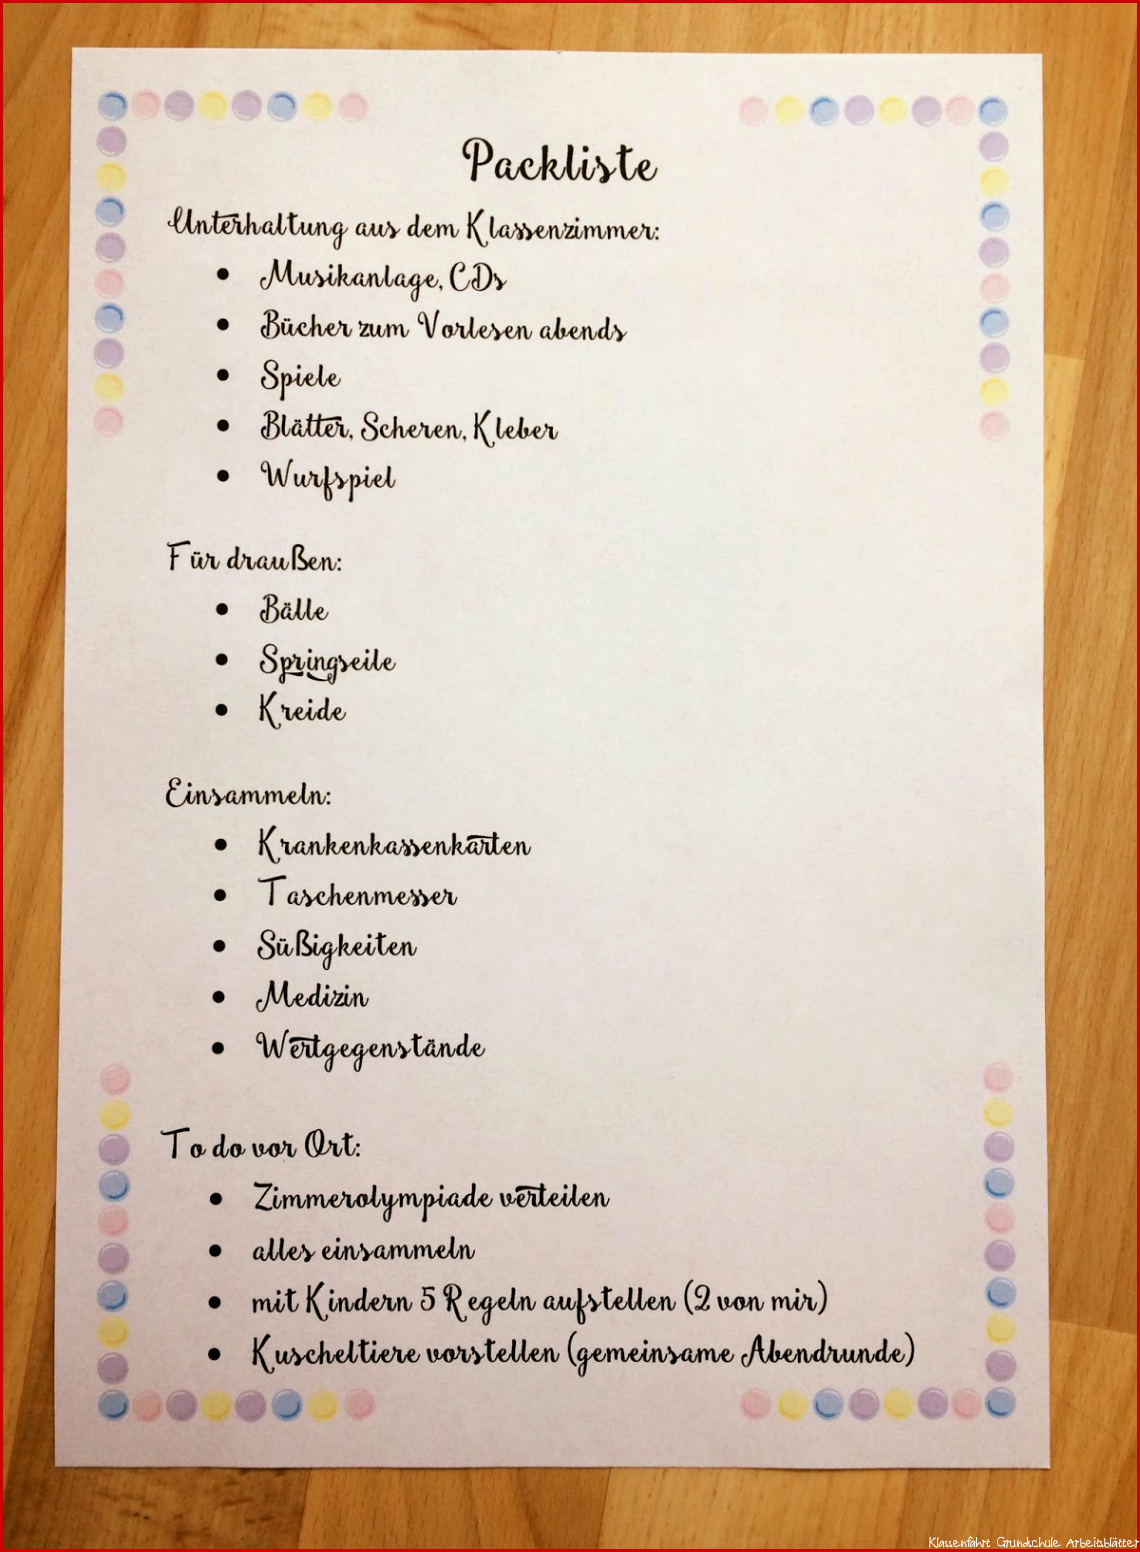 Packliste
Unterhaltung aus dem Klassenzimmer:
• Musikanlage, CDs
• Bücher zum Vorlesen abends
• Spiele
• Blätter, Scheren, Kleber
• Wurfspiel
Für draußen:
• Bälle
• Springseile
• Kreide
Einsammeln:
• Krankenkassenkarten
• Taschenmesser
• Süßigkeiten
• Medizin
• Wertgegenstände
To do vor Ort:
• Zimmerolympiade verteilen
• alles einsammeln
• mit Kindern 5 Regeln aufstellen (2 von mir)
• Kuscheltiere vorstellen (gemeinsame Abendrunde)
Klassenfahrt Grundschule Arbeitsblätter